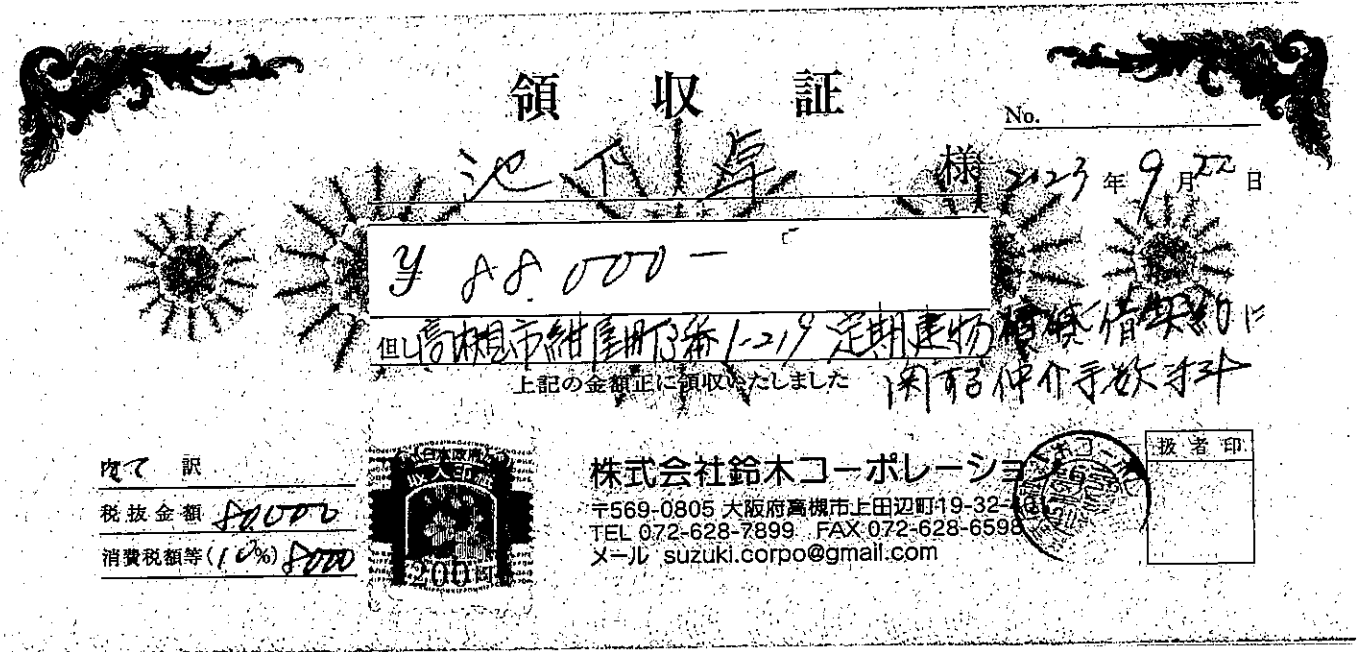 領 収 証
No.
池下 卓 様
2023 年 9 月 22 日
¥ 88.000-
但し高槻市紺屋町3番1-219 定期建物賃貸借契約に
関する仲介手数料
上記の金額正に領収いたしました
内 訳
税抜金額 80000
消費税額等(10%) 8000
日本政府
収入印紙
200円
株式会社鈴木コーポレーショ
〒569-0805 大阪府高槻市上田辺町19-32-
TEL 072-628-7899 FAX 072-628-6598
メール suzuki.corpo@gmail.com
扱者印